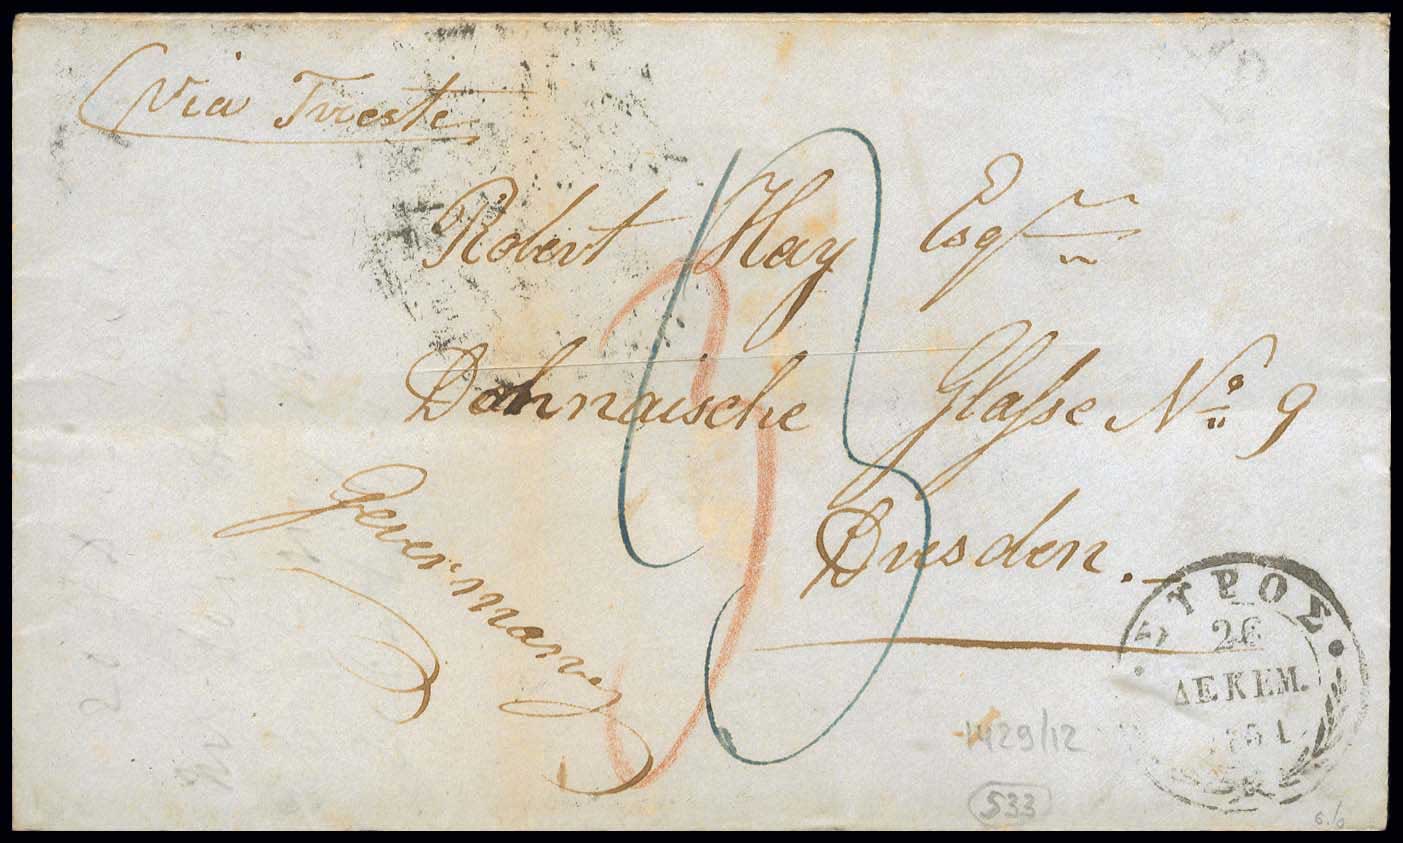 via Trieste
Robert Hay Esqr
Dohnaische Glasse No 9
Dresden.
Germany
3
3
ΣΥΡΟΣ
26
ΔΕΚΕΜ.
1851
1429/12
533
6.10